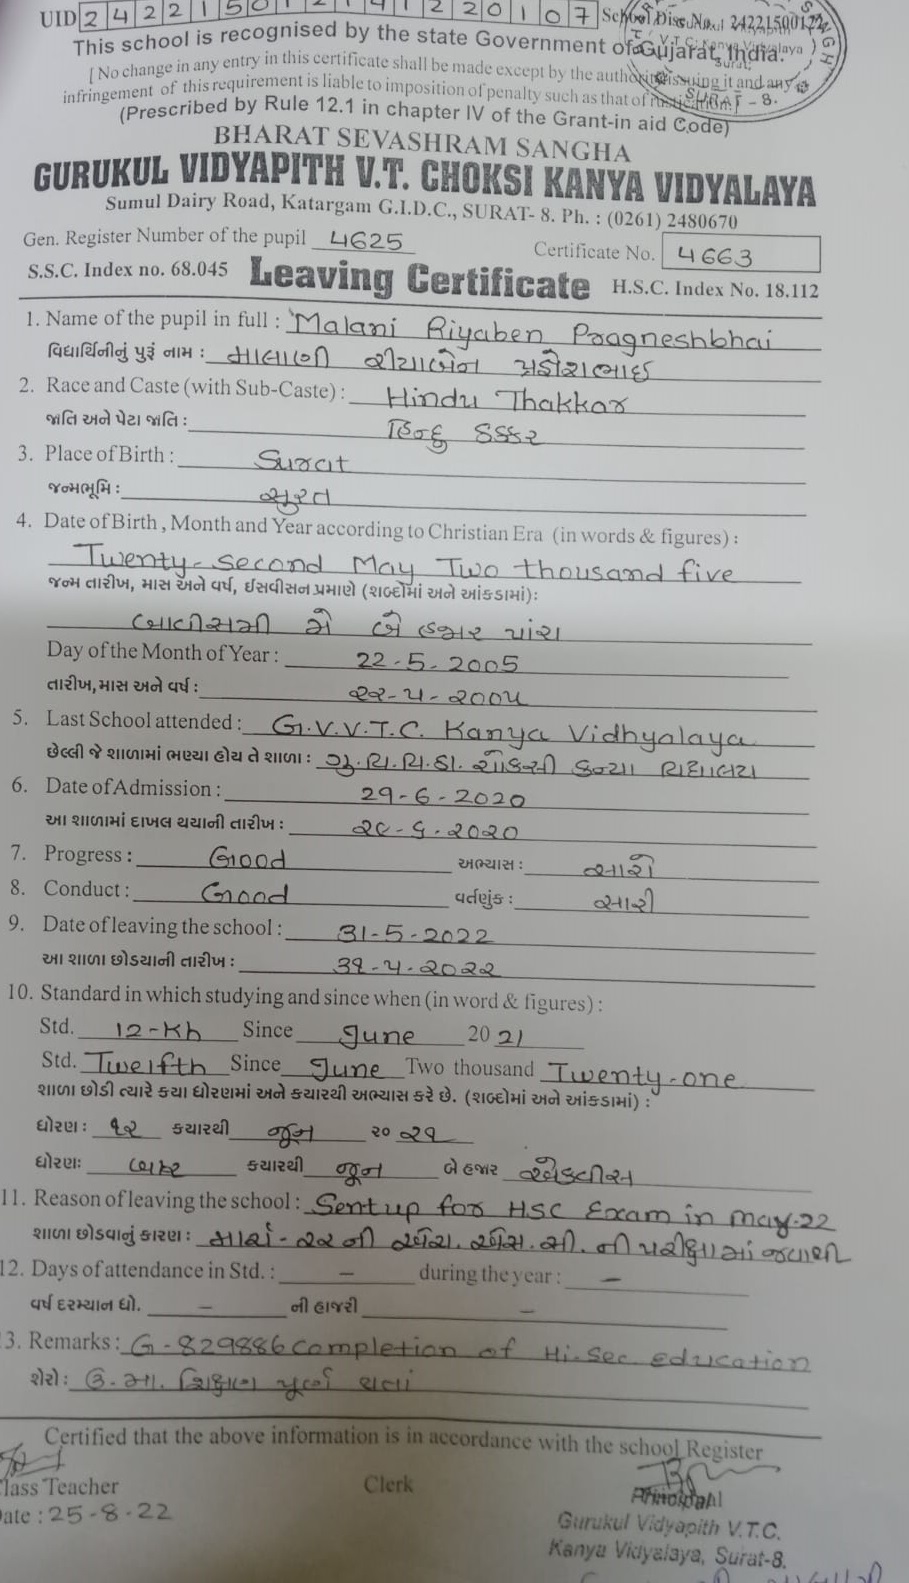 UID 2 4 2 2 1 5 0 1 2 2 0 1 0 7 School Dise No. 24221500122
This school is recognised by the state Government of Gujarat, India.
[ No change in any entry in this certificate shall be made except by the authority issuing it and any
infringement of this requirement is liable to imposition of penalty such as that of rustication.]
SURAT - 8.
(Prescribed by Rule 12.1 in chapter IV of the Grant-in aid Code)
BHARAT SEVASHRAM SANGHA
GURUKUL VIDYAPITH V.T. CHOKSI KANYA VIDYALAYA
Sumul Dairy Road, Katargam G.I.D.C., SURAT- 8. Ph. : (0261) 2480670
Gen. Register Number of the pupil 4625 Certificate No. 4663
S.S.C. Index no. 68.045 Leaving Certificate H.S.C. Index No. 18.112
1. Name of the pupil in full : Malani Riyaben Pragneshbhai
વિદ્યાર્થિનીનું પુરૂં નામ : માલાણી રીયાબેન પ્રજ્ઞેશભાઈ
2. Race and Caste (with Sub-Caste) : Hindu Thakkar
જાતિ અને પેટા જાતિ : હિન્દુ ઠક્કર
3. Place of Birth : Surat
જન્મભૂમિ : સુરત
4. Date of Birth , Month and Year according to Christian Era (in words & figures) :
Twenty-second May Two thousand five
જન્મ તારીખ, માસ અને વર્ષ, ઈસવીસન પ્રમાણે (શબ્દોમાં અને આંકડામાં):
બાવીસમી મે બે હજાર પાંચ
Day of the Month of Year : 22-5-2005
તારીખ, માસ અને વર્ષ : ૨૨-૫-૨૦૦૫
5. Last School attended : G.V.V.T.C. Kanya Vidhyalaya
છેલ્લી જે શાળામાં ભણ્યા હોય તે શાળા : ગુ.વિ.વિ.ટી. ચોકસી કન્યા વિદ્યાલય
6. Date of Admission : 29-6-2020
આ શાળામાં દાખલ થયાની તારીખ : ૨૯-૬-૨૦૨૦
7. Progress : Good અભ્યાસ : સારો
8. Conduct : Good વર્તણુંક : સારી
9. Date of leaving the school : 31-5-2022
આ શાળા છોડયાની તારીખ : ૩૧-૫-૨૦૨૨
10. Standard in which studying and since when (in word & figures) :
Std. 12-Kh Since June 20 21
Std. Twelfth Since June Two thousand Twenty-one
શાળા છોડી ત્યારે કયા ધોરણમાં અને કયારથી અભ્યાસ કરે છે. (શબ્દોમાં અને આંકડામાં) :
ધોરણ : ૧૨ કયારથી જૂન ૨૦ ૨૧
ધોરણ: બાર કયારથી જૂન બે હજાર એકવીસ
11. Reason of leaving the school : Sent up for HSC Exam in may-22
શાળા છોડવાનું કારણ : માર્ચ-૨૨ ની એચ. એસ. સી. ની પરીક્ષામાં જવાથી
12. Days of attendance in Std. : - during the year : -
વર્ષ દરમ્યાન ધો. - ની હાજરી -
3. Remarks : G-829886 Completion of Hi-Sec education
શેરો : ઉ.મા. શિક્ષણ પૂર્ણ થતાં
Certified that the above information is in accordance with the school Register
lass Teacher Clerk Principal
ate : 25-8-22
Gurukul Vidyapith V.T.C.
Kanya Vidyalaya, Surat-8.